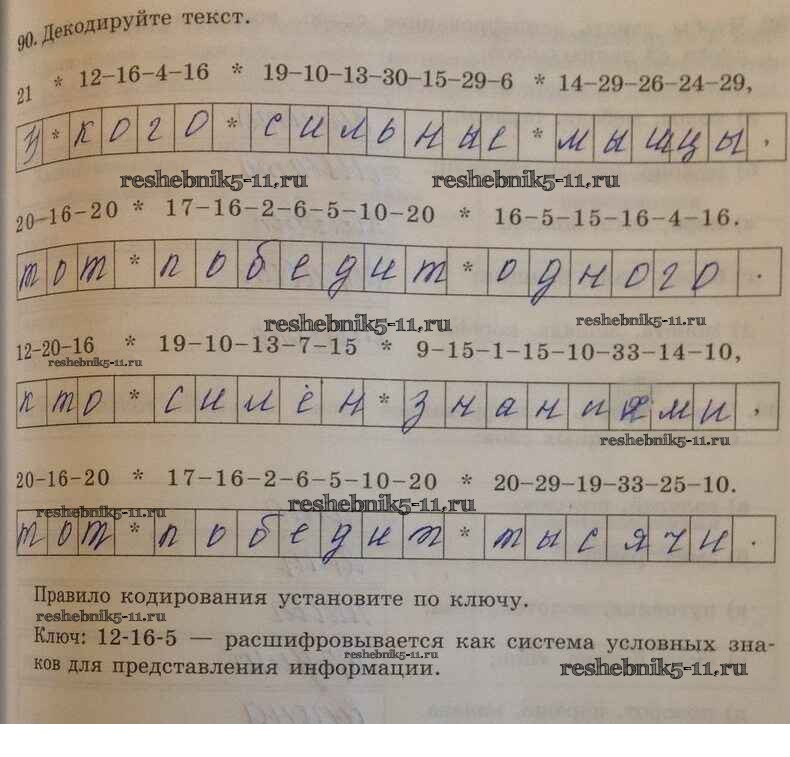 90. Декодируйте текст.
21 * 12–16–4–16 * 19–10–13–30–15–29–6 * 14–29–26–24–29,
у * кого * сильные * мышцы ,
reshebnik5-11.ru reshebnik5-11.ru
20–16–20 * 17–16–2–6–5–10–20 * 16–5–15–16–4–16.
тот * победит * одного .
reshebnik5-11.ru reshebnik5-11.ru
12-20-16 * 19–10–13–7–15 * 9–15–1–15–10–33–14–10,
reshebnik5-11.ru
кто * силён * знаниями ,
reshebnik5-11.ru
20-16-20 * 17–16–2–6–5–10–20 * 20–29–19–33–25–10.
reshebnik5-11.ru reshebnik5-11.ru
тот * победит * тысячи .
Правило кодирования установите по ключу.
reshebnik5-11.ru
Ключ: 12-16-5 — расшифровывается как система условных зна-
reshebnik5-11.ru
ков для представления информации.
reshebnik5-11.ru